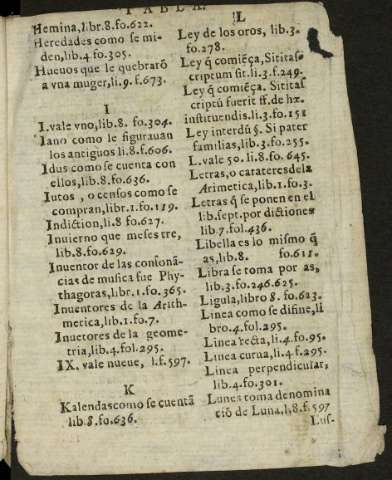 TABLA.
Hemina, libr.8.fo.622.
Heredades como se mi-
den, lib.4 fo.305.
Hueuos que le quebrarō
a vna muger, li.9.f.673.
I
I. vale vno, lib.8. fo.304.
Iano como le figurauan
los antiguos li.8.f.606.
Idus como se cuenta con
ellos, lib.8.fo.636.
Iutos, o censos como se
compran, libr.1.fo.119.
Indiction, li.8 fo.627.
Inuierno que meses tre,
lib.8.fo.629.
Inuentor de las consonā-
cias de musica fue Phy-
thagoras, libr.1.fo.365.
Inuentores de la Arith-
metica, lib.1.fo.7.
Inuētores de la geome-
tria, lib.4.fol.295.
IX. vale nueue, l.f.597.
K
Kalendas como se cuentā
lib 8.fo.636.
L
Ley de los oros, lib.3.
fo.278.
Ley q̄ comiēça, Si ita sc
criptum sit. li.3.f.249.
Ley q̄ comiēça. Si ita s
criptū fuerit ff. de hæ.
instituendis. li.3.fo.151
Ley interdū §. Si pater
familias, lib.3.fo.255.
L. vale 50. li.8.fo. 645.
Letras, o carateres de la
Arimetica, lib.1.fo.3.
Letras q̄ se ponen en el
lib. sept. por dictiones
lib.7.fol.436.
Libella es lo mismo q̄
as, lib.8. fo.611.
Libra se toma por as,
lib.3.fo.246.625.
Ligula, libro 8. fo.623.
Linea como se difine, li
bro.4.fol.295.
Linea recta, li.4.fo.95.
Linea curua, li.4.f.295.
Linea perpendicular,
lib.4.fo.301.
Lunes toma denomina
ciō de Luna, l,8.f.597
Lus-